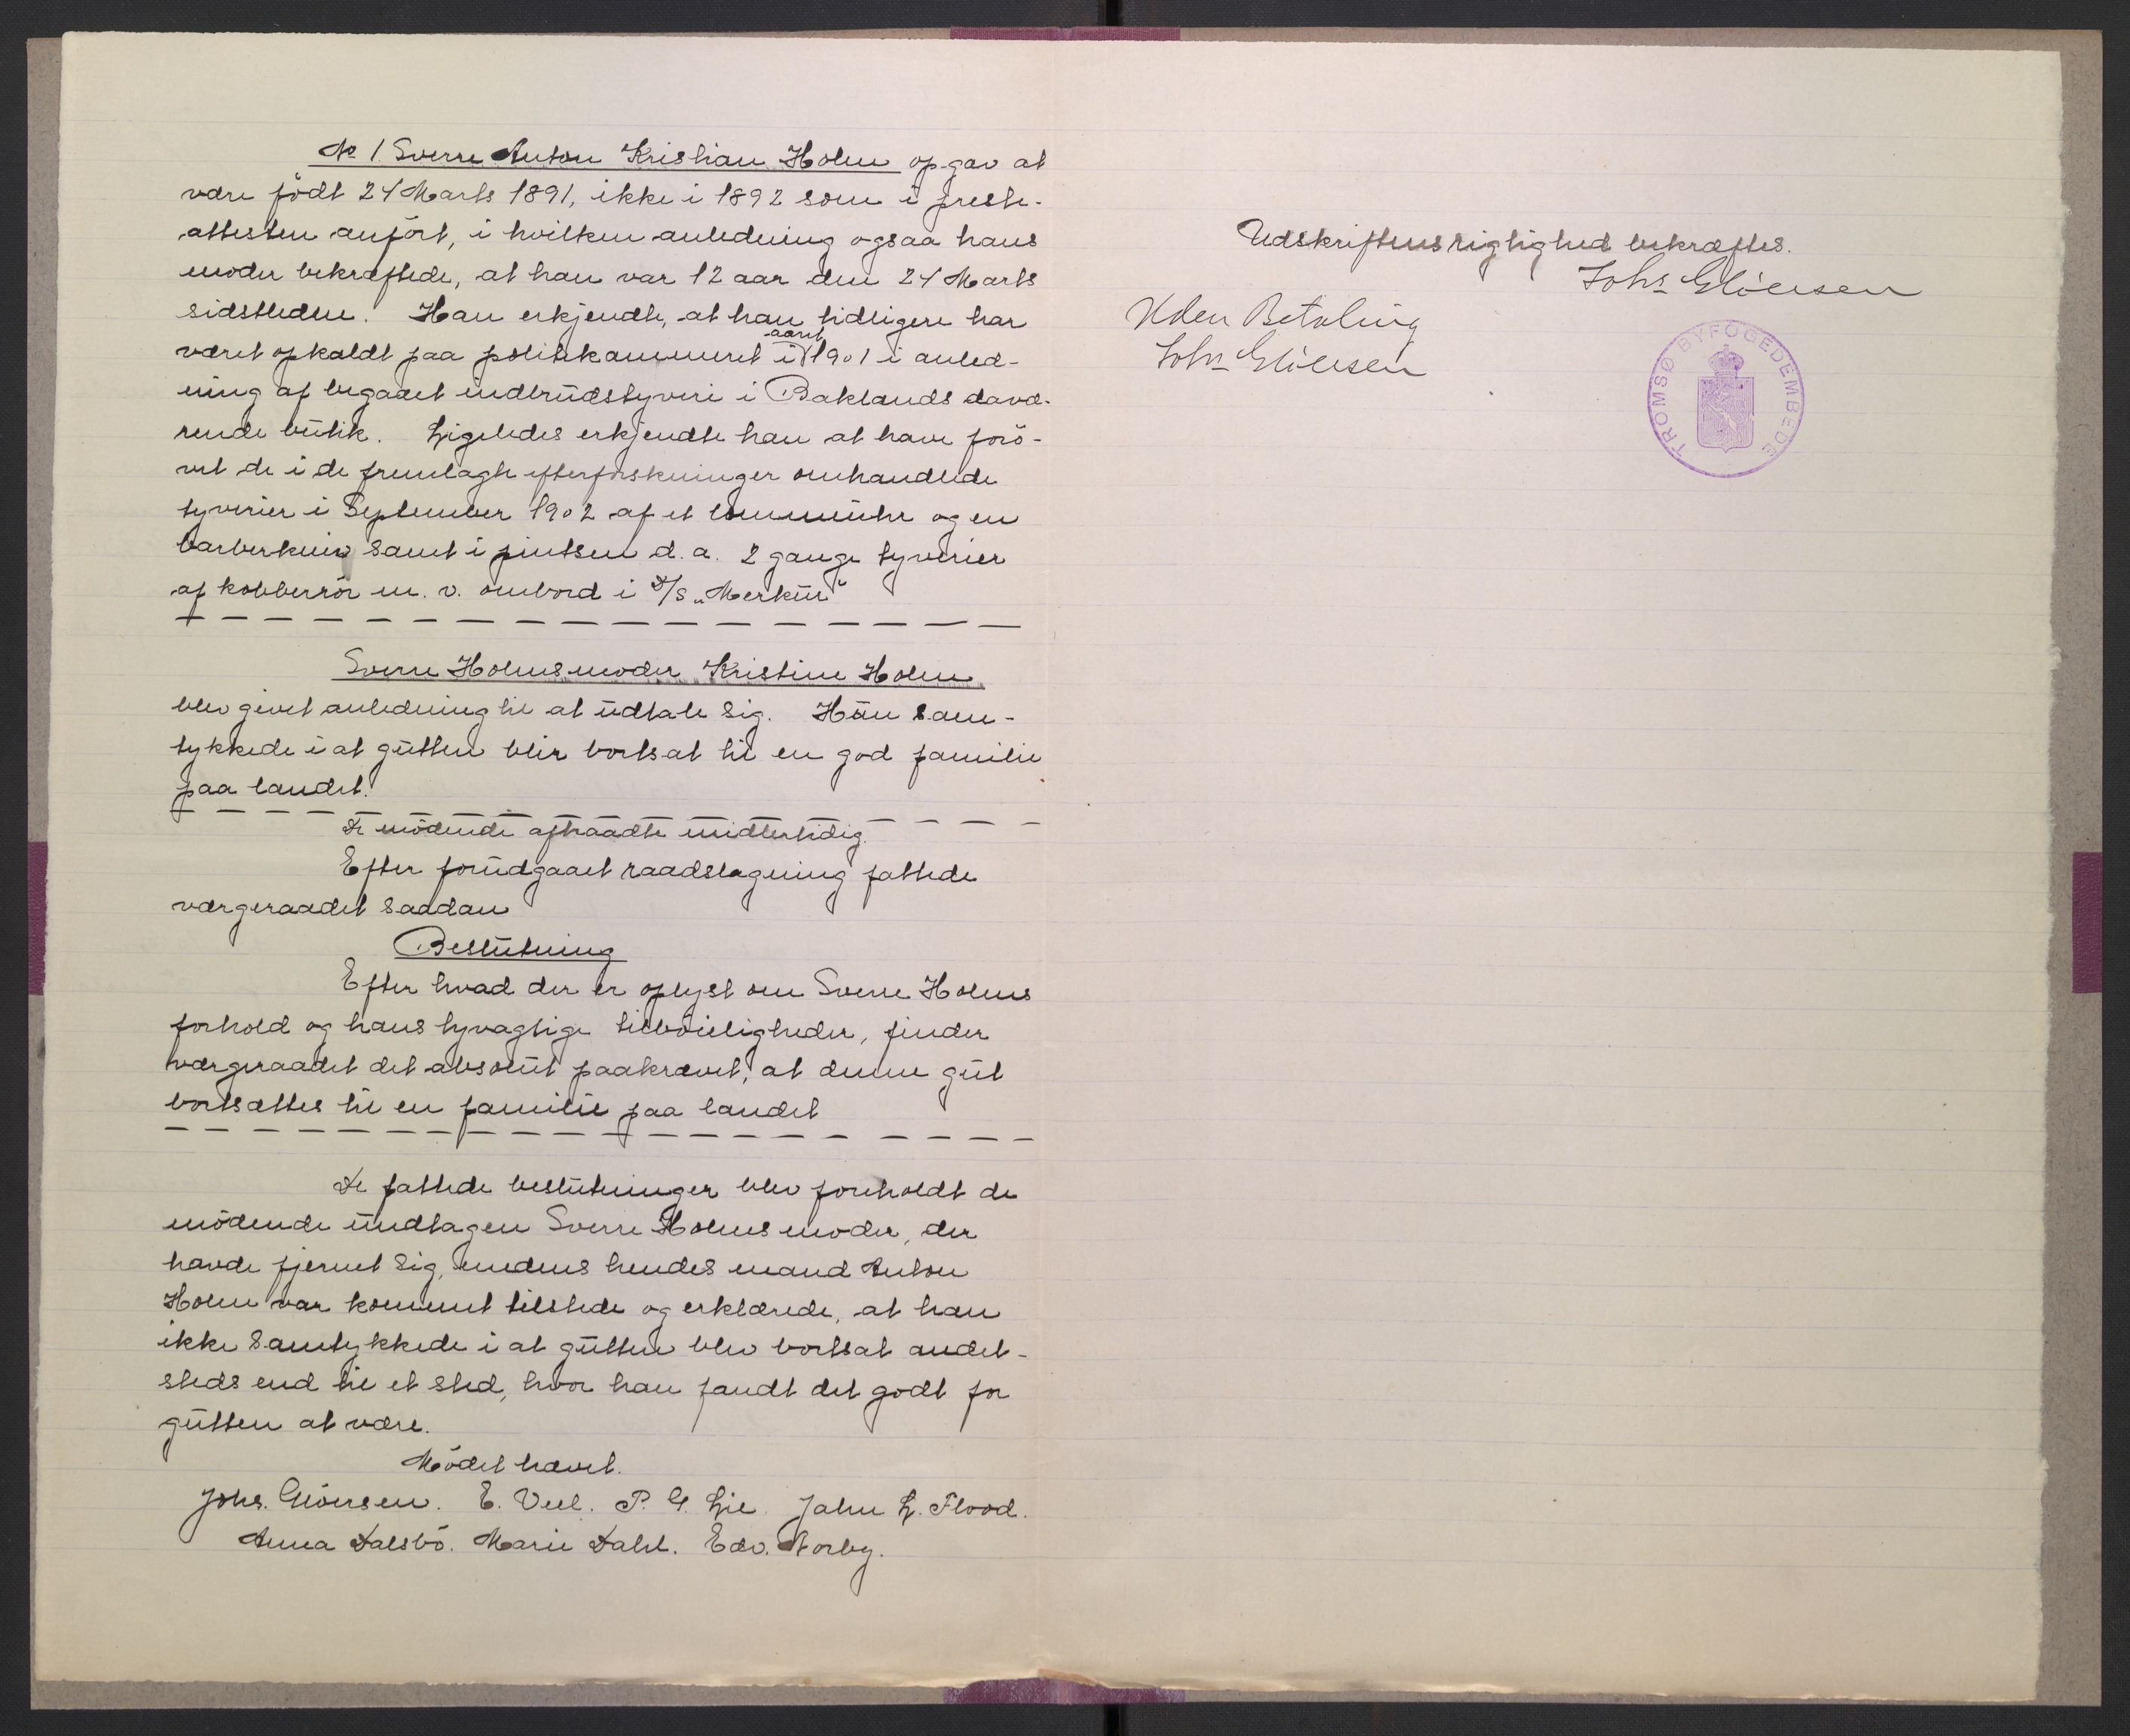 No 1 Sverre Anton Kristian Holm opgav at
være födt 24 Marts 1891, ikke i 1892 som i preste-
attesten anfört, i hvilken anledning ogsaa hans
moder bekræftede, at han var 12 aar den 24 Marts
sidstleden. Han erkjendte, at han tidligere har
været opkaldt paa politikammeret i aaret 1901 i anled-
ning af begaaet indbrudstyveri i Baklands davæ-
rende butik. Ligeledes erkjendte han at have forö-
vet de i de fremlagte efterforskninger omhandlede
tyverier i September 1902 af et lommeuhr og en
barberkniv samt i pintsen d. a. 2 gange tyverier
af kobberrör m. v. ombord i D/S „Merkur"
Sverre Holms moder Kristine Holm
blev givet anledning til at udtale sig. Hun sam-
tykkede i at gutten blir bortsat til en god familie
paa landet.
De mödende aftraadte midlertidig.
Efter forudgaaet raadslagning fattede
værgeraadet saadan
Beslutning
Efter hvad der er oplyst om Sverre Holms
forhold og hans tyvagtige tilböieligheder, finder
værgeraadet det absolut paakrævet, at denne gut
bortsættes til en familie paa landet
De fattede beslutninger blev foreholdt de
mödende undtagen Sverre Holms moder, der
havde fjernet sig, medens hendes mand Anton
Holm var kommet tilstede og erklærede, at han
ikke samtykkede i at gutten blev bortsat andet-
steds end til et sted, hvor han fandt det godt for
gutten at være.
Mödet hævet.
Johs. Glöersen. E. Veel. P. G. Lie. Jahn L. Flood.
Anna Dalsbö. Marie Dahl. Edv. Norby.
Udskriftens rigtighed bekræftes.
Johs Glöersen
Uden Betaling
Johs Glöersen
TROMSØ BYFOGEDEMBEDE